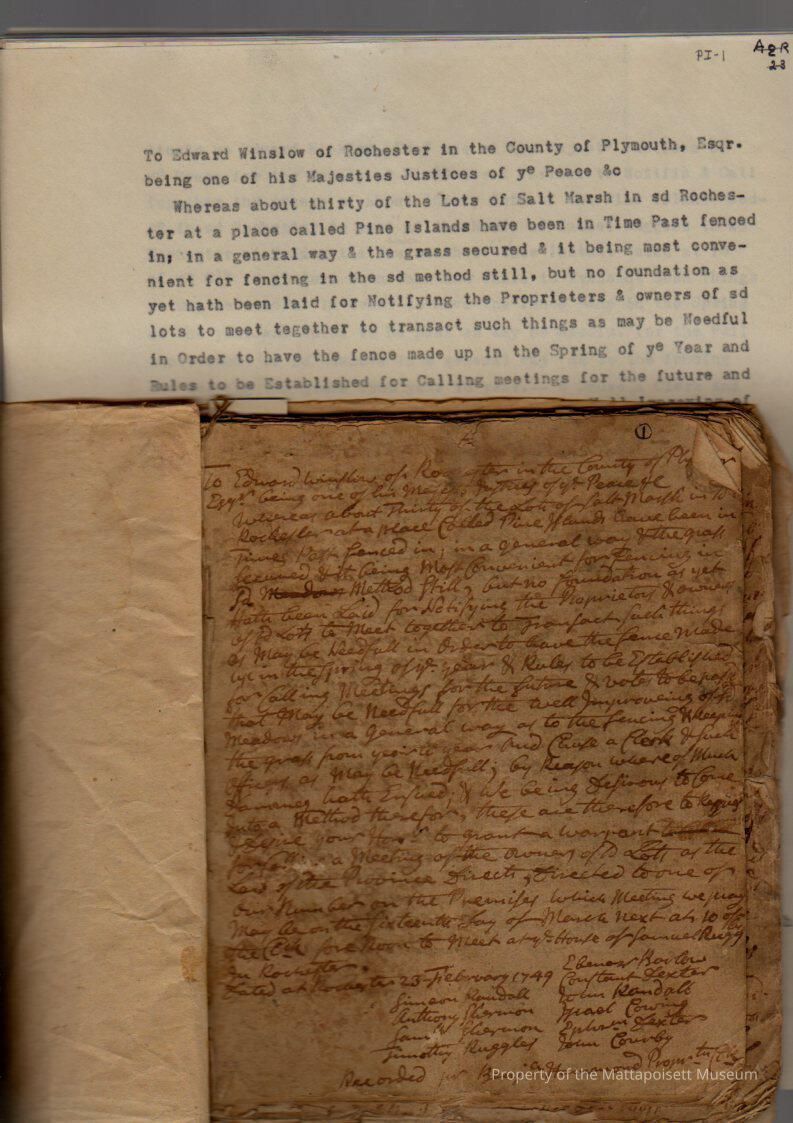 PI-1
AQR
23
To Edward Winslow of Rochester in the County of Plymouth, Esqr.
being one of his Majesties Justices of yᵉ Peace &c
Whereas about thirty of the Lots of Salt Marsh in sd Roches-
ter at a place called Pine Islands have been in Time Past fenced
in; in a general way & the grass secured & it being most conve-
nient for fencing in the sd method still, but no foundation as
yet hath been laid for Notifying the Proprieters & owners of sd
lots to meet tegether to transact such things as may be Needful
in Order to have the fence made up in the Spring of yᵉ Year and
Rules to be Established for Calling meetings for the future and
①
To Edward Winslow of Rochester in the County of
Esqʳ being one of his Justices of yᵉ Peace &c
Whereas about Thirty of the Lots of Salt Marsh in
Rochester at a place Called Pine Islands have been in
Times Past fenced in; in a general way & the grass
secured & it being Most Convenient for fencing in
Meadows Method Still, but no Foundation as yet
hath been Laid for Notifying the Proprietors & owners
of sd Lots to Meet together to Transact such things
as May be Needfull in Order to have the fence Made
up in the Spring of yᵉ year & Rules to be Established
for Calling Meetings for the future & votes to be
that May be Needfull for the Well Improveing of
Meadows in a General way as to the fencing &
the grass from year to year And Chuse a Clerk & such
officers as May be Needfull; by Reason whereof Much
Dammage hath Ensued; & We being Desirous to Come
into a Method therefor, these are therefore to
Desire your Honʳ to grant a warrant
for a Meeting of the owners of sd Lots as the
Law of the Province Directs, Directed to one of
our Number on the Premises which Meeting we pray
May be on the Day of March Next at 10 of
the Clk fore Noon to Meet at yᵉ House of Samuel
In Rochester.
Dated at Rochester 23 February 1749
Ebenezʳ Barlow
Constant Dexter
Simeon Randall John Randall
Anthony Shermon Israel Cowing
Samˡˡ Shermon Ephraim Dexter
Timothy Ruggles John
Recorded
Property of the Mattapoisett Museum